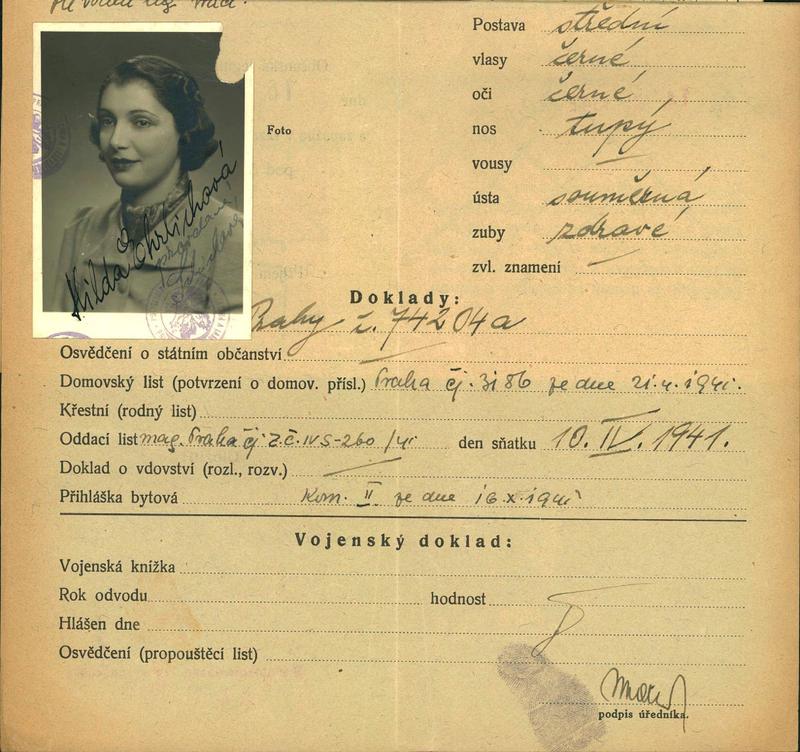 Postava střední
vlasy černé
oči černé
Foto
nos tupý
vousy —
ústa souměrná
zuby zdravé
zvl. znamení —
Hilda Ehrlichová
Doklady:
č. 74204a
Osvědčení o státním občanství —
Domovský list (potvrzení o domov. přísl.) Praha čj. 3186 ze dne 21.4.1941.
Křestní (rodný list) —
Oddací list mag. Praha čj Z.č. IV S-260/41 den sňatku 10. IV. 1941.
Doklad o vdovství (rozl., rozv.) —
Přihláška bytová Kom. II ze dne 16.X.1941
Vojenský doklad:
Vojenská knížka
Rok odvodu hodnost
Hlášen dne
Osvědčení (propouštěcí list)
podpis úředníka.